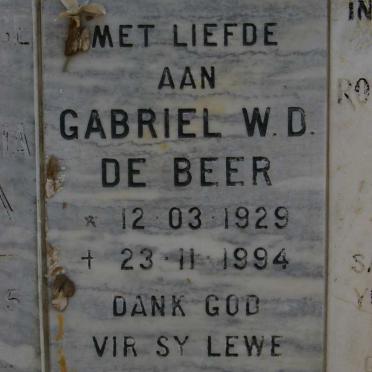 MET LIEFDE
AAN
GABRIEL W. D.
DE BEER
* 12·03·1929
† 23·11·1994
DANK GOD
VIR SY LEWE